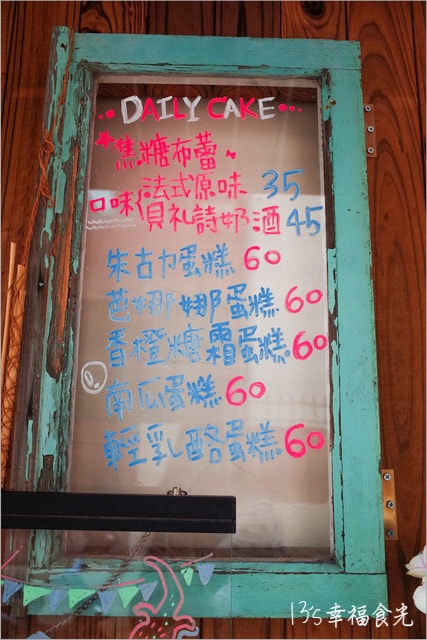 DAILY CAKE
焦糖布蕾
口味/法式原味 35
貝礼詩奶酒 45
朱古力蛋糕 60
芭娜娜蛋糕 60
香橙糖霜蛋糕 60
南瓜蛋糕 60
輕乳酪蛋糕 60
13's幸福食光